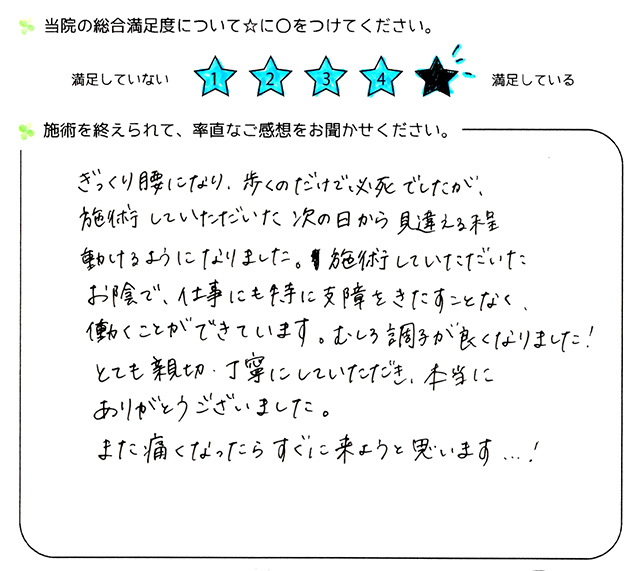 当院の総合満足度について☆に○をつけてください。
満足していない 1 2 3 4 満足している
施術を終えられて、率直なご感想をお聞かせください。
ぎっくり腰になり、歩くのだけで必死でしたが、
施術していただいた次の日から見違える程
動けるようになりました。施術していただいた
お陰で、仕事にも特に支障をきたすことなく、
働くことができています。むしろ調子が良くなりました!
とても親切・丁寧にしていただき、本当に
ありがとうございました。
また痛くなったらすぐに来ようと思います...!